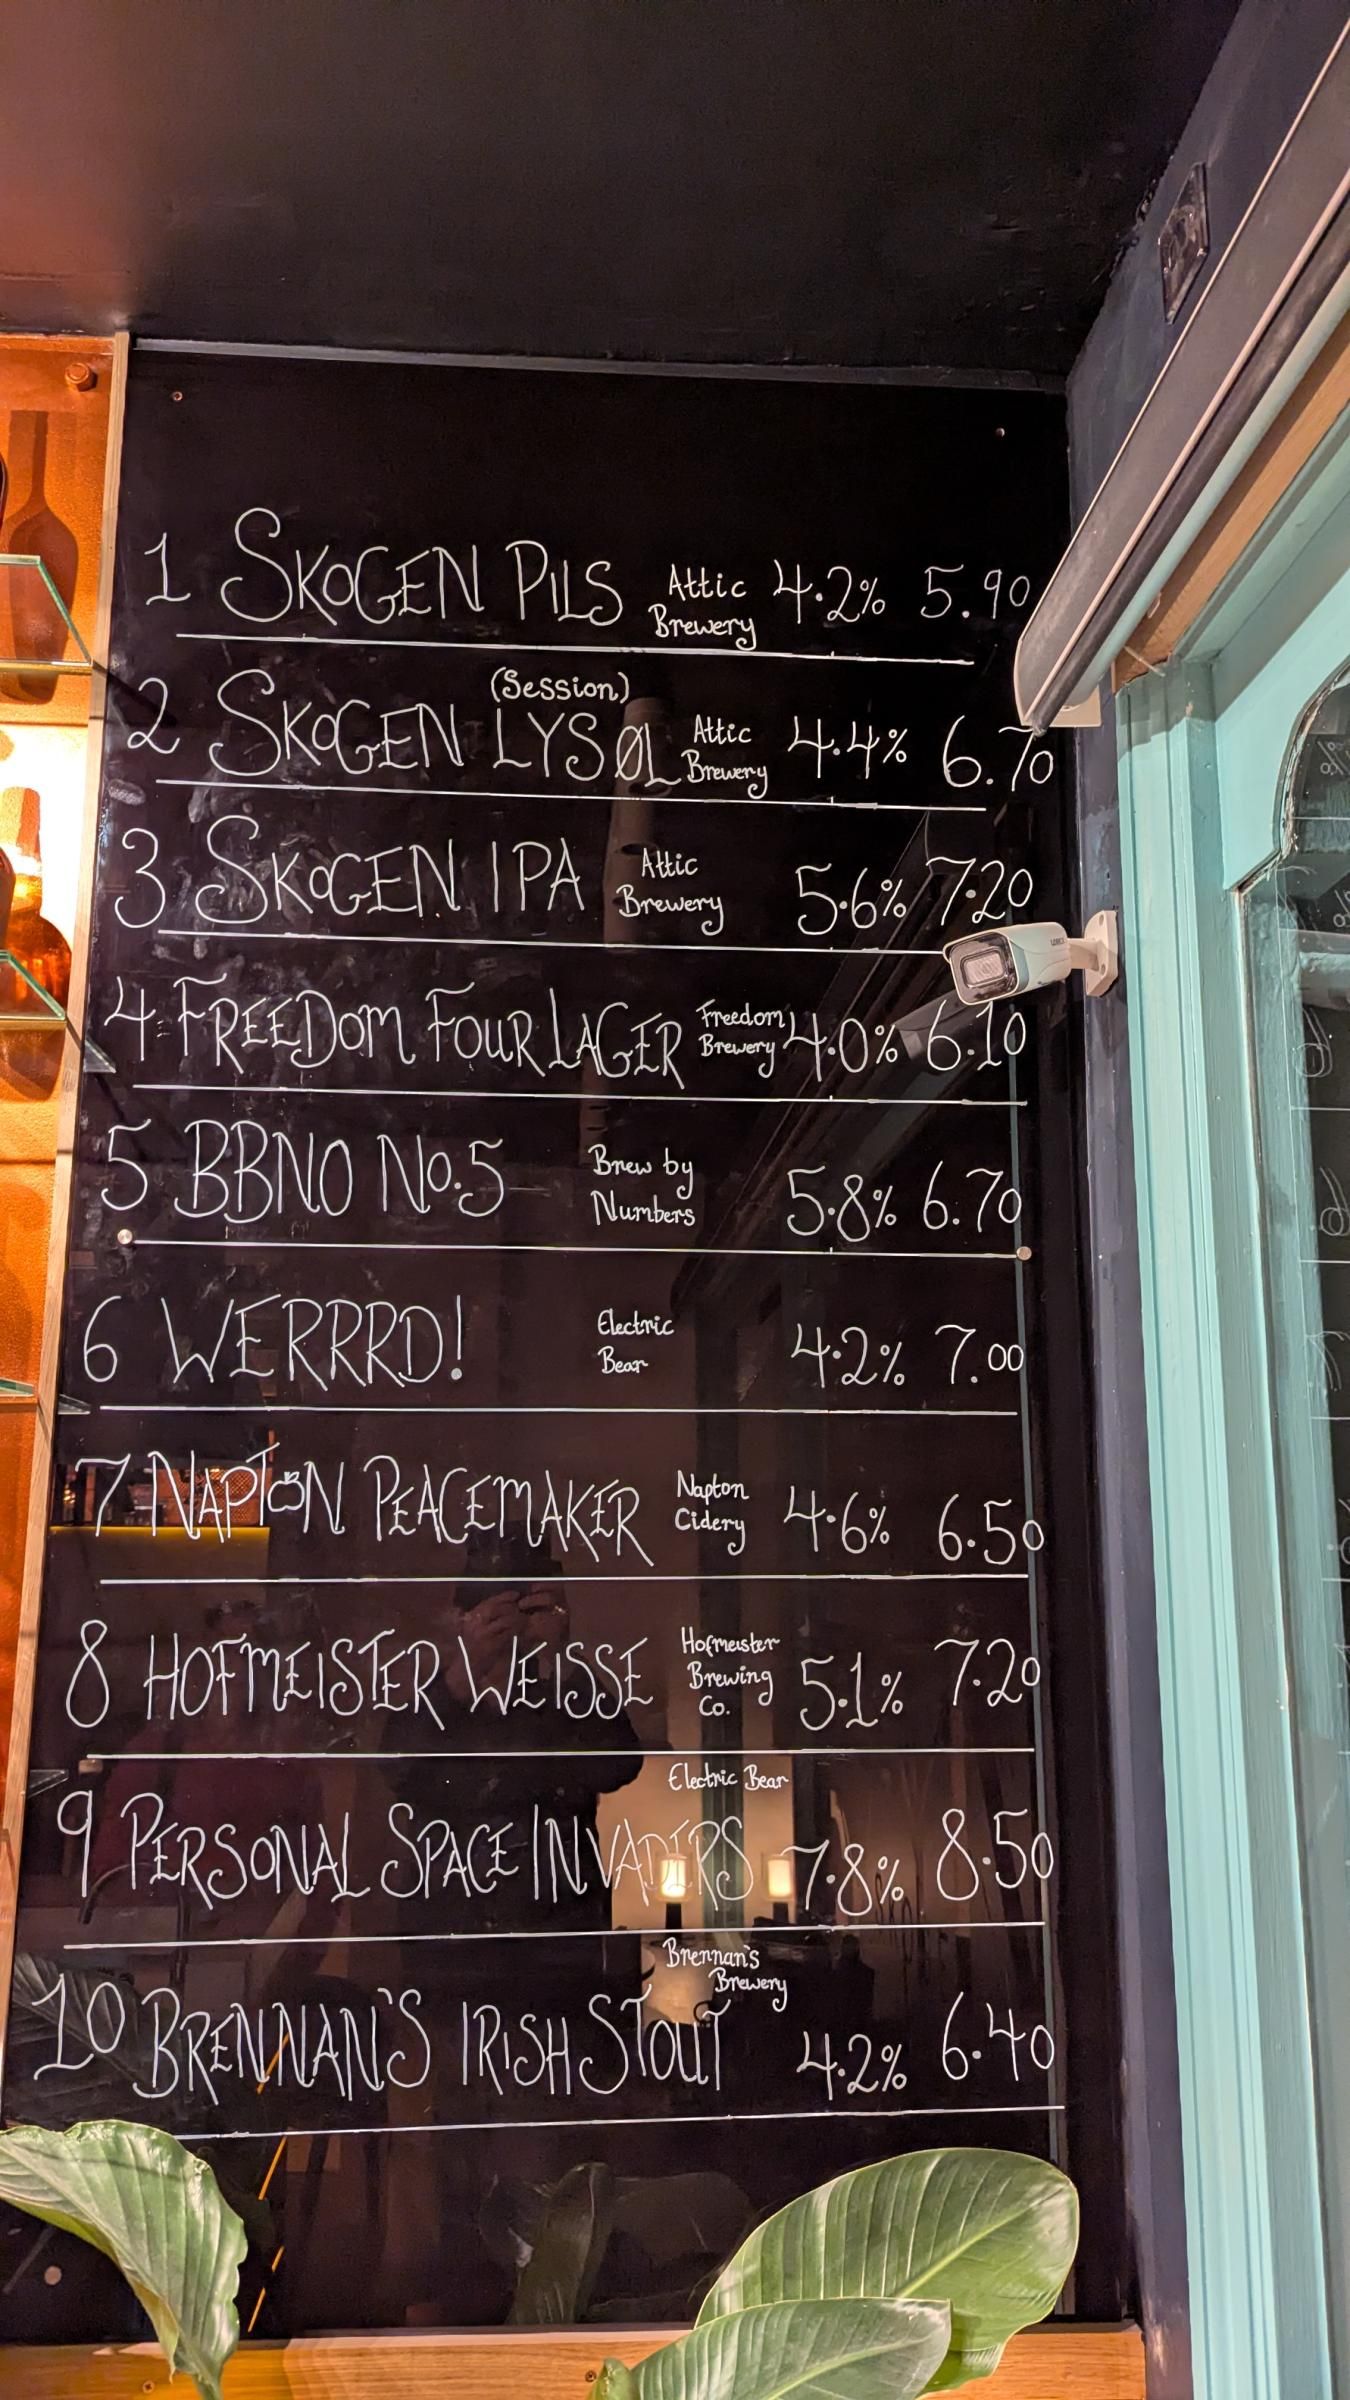 1 SKOGEN PILS Attic Brewery 4.2% 5.90
2 SKOGEN (Session) LYSØL Attic Brewery 4.4% 6.70
3 SKOGEN IPA Attic Brewery 5.6% 7.20
4 FREEDOM FOUR LAGER Freedom Brewery 4.0% 6.10
5 BBNO No.5 Brew by Numbers 5.8% 6.70
6 WERRRD! Electric Bear 4.2% 7.00
7 NAPTON PEACEMAKER Napton Cidery 4.6% 6.50
8 HOFMEISTER WEISSE Hofmeister Brewing Co. 5.1% 7.20
9 PERSONAL SPACE INVADERS Electric Bear 7.8% 8.50
10 BRENNAN'S IRISH STOUT Brennan's Brewery 4.2% 6.40